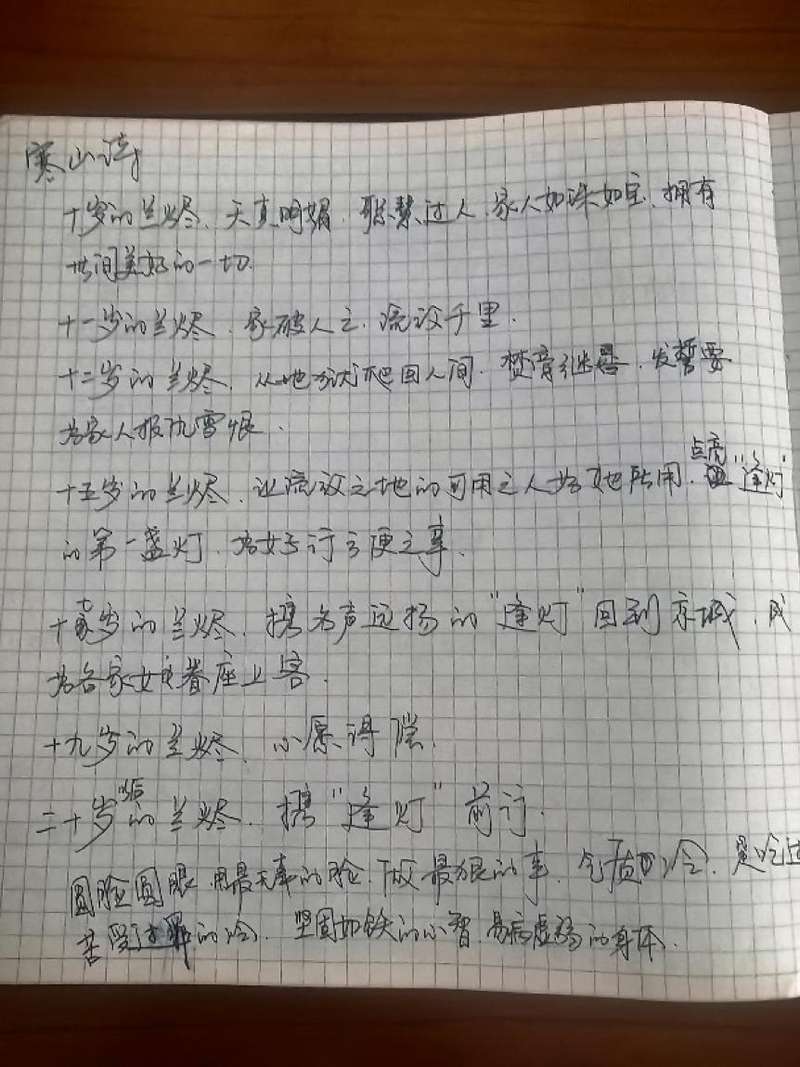 寒山诗
十岁的兰烬、天真明媚、聪慧过人、家人如珠如宝、拥有
世间美好的一切.
十一岁的兰烬、家破人亡、流放千里.
十二岁的兰烬、从地狱爬回人间、焚膏继晷、发誓要
为家人报仇雪恨.
十五岁的兰烬、让流放之地的可用之人为她所用、点亮"逢灯"
的第一盏灯、为女子行方便之事.
十七岁的兰烬、携名声远扬的"逢灯"回到京城、成
为各家女眷座上客.
十九岁的兰烬、心愿得偿.
二十岁以后的兰烬、携"逢灯"前行.
圆脸圆眼、用最无辜的脸、做最狠的事、气质冷、是吃过
苦受过罪的冷、坚固如铁的心智、易病虚弱的身体.